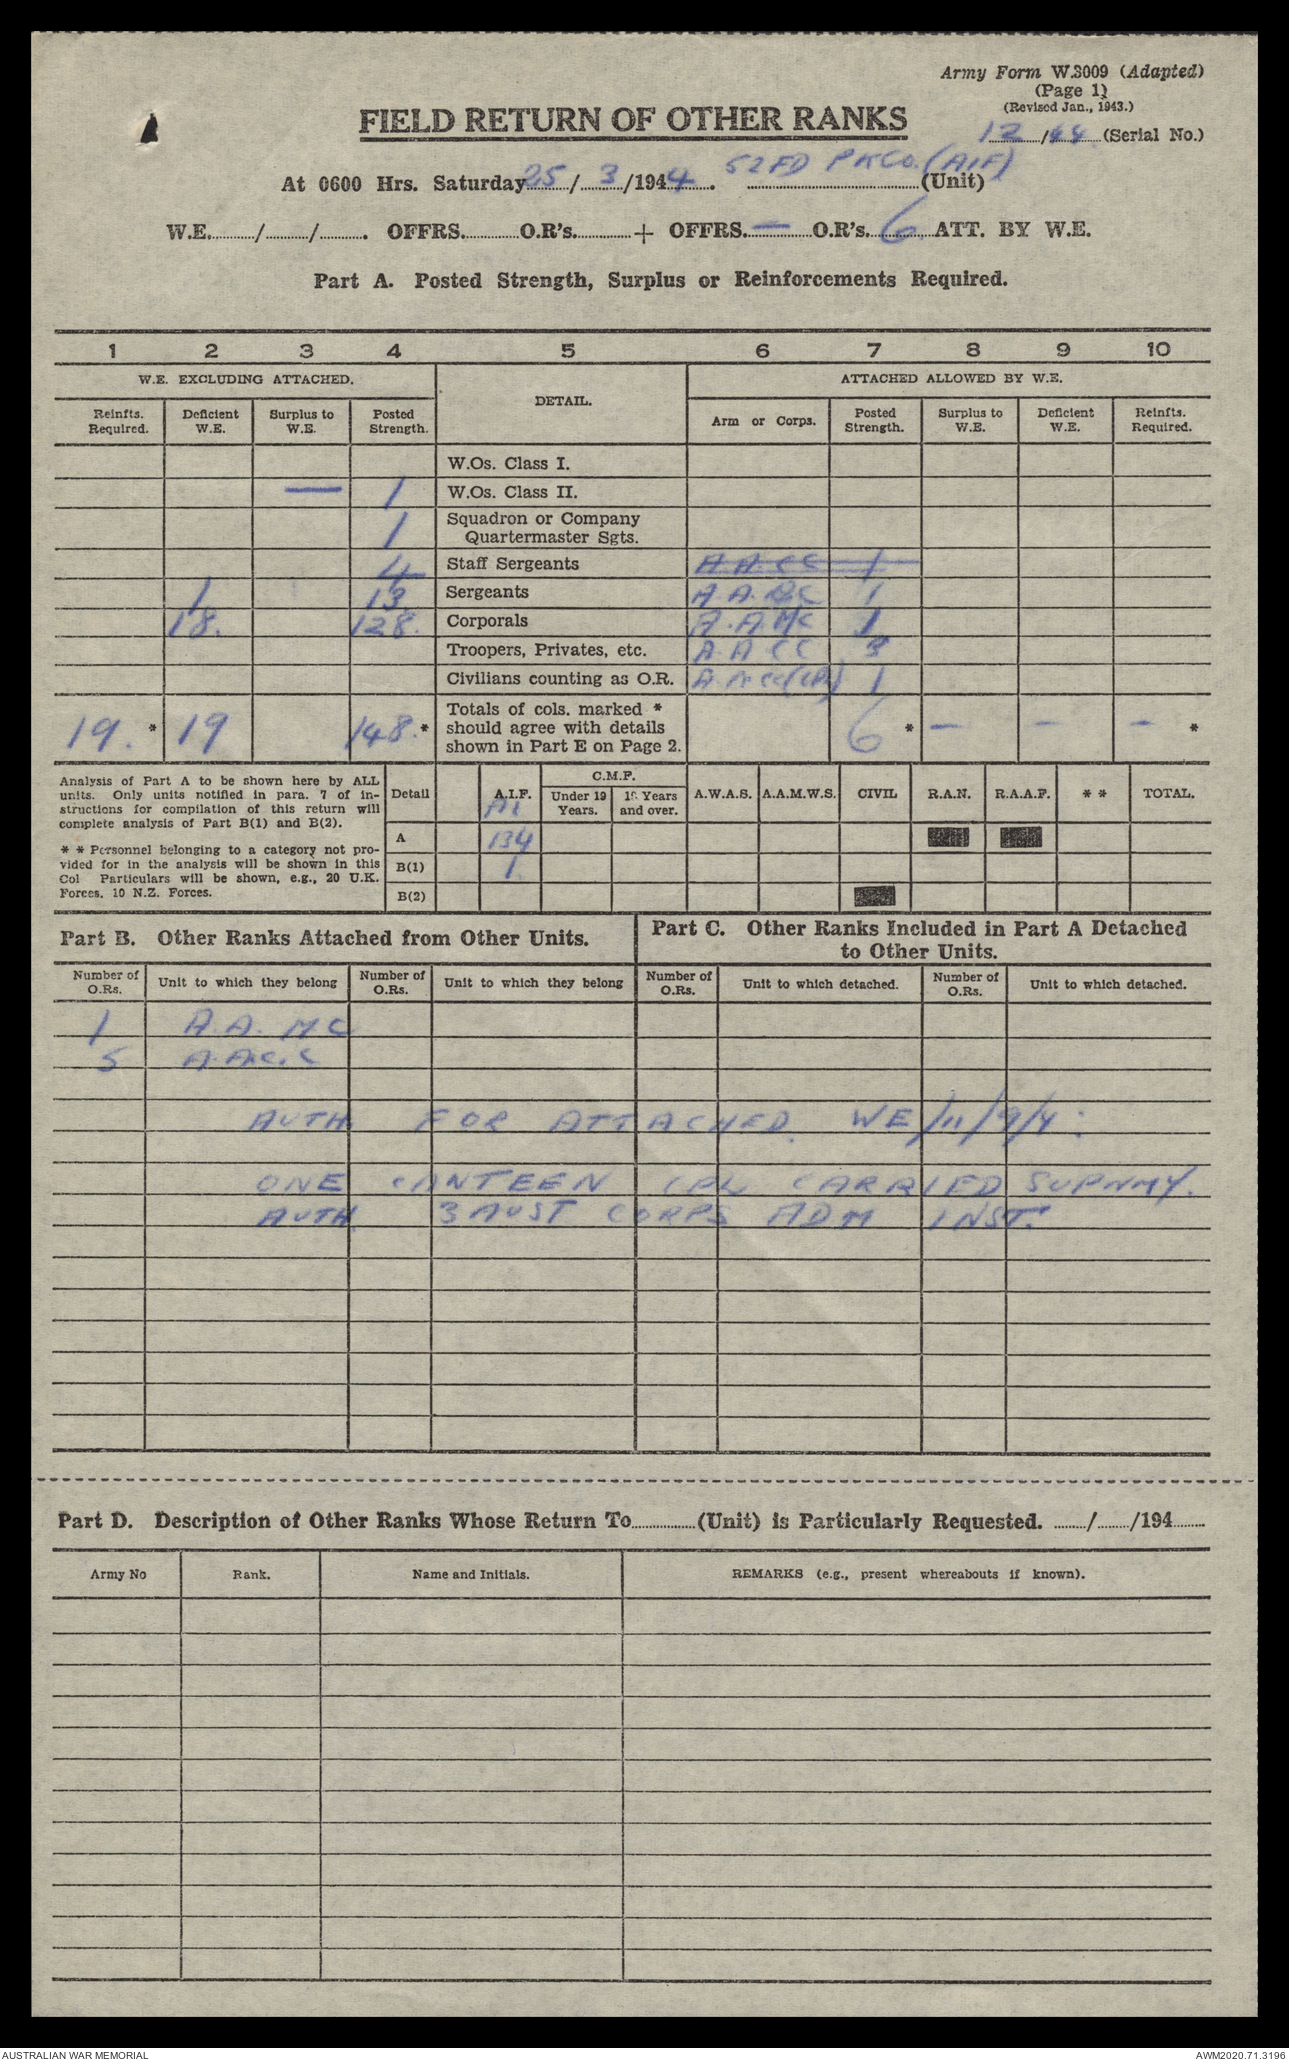 Army Form W.3009 (Adapted)
(Page 1)
(Revised Jan., 1943.)
FIELD RETURN OF OTHER RANKS
12/44 (Serial No.)
At 0600 Hrs. Saturday 25/3/1944. 52 FD PK Co. (AIF) (Unit)
W.E. / / . OFFRS. O.R's. + OFFRS. — O.R's. 6 ATT. BY W.E.
Part A. Posted Strength, Surplus or Reinforcements Required.
1 2 3 4 5 6 7 8 9 10
W.E. EXCLUDING ATTACHED. DETAIL. ATTACHED ALLOWED BY W.E.
Reinfts. Required. Deficient W.E. Surplus to W.E. Posted Strength. Arm or Corps. Posted Strength. Surplus to W.E. Deficient W.E. Reinfts. Required.
W.Os. Class I.
— 1 W.Os. Class II.
1 Squadron or Company
Quartermaster Sgts.
4 Staff Sergeants A.A.C.C 1
1 13 Sergeants A.A.C.C 1
18. 128. Corporals A.A.M.C 1
Troopers, Privates, etc. A.A.C.C 3
Civilians counting as O.R. A.A.C.C (CPL) 1
19. * 19 148. * Totals of cols. marked *
should agree with details
shown in Part E on Page 2. 6 * — — — *
Analysis of Part A to be shown here by ALL
units. Only units notified in para. 7 of in-
structions for compilation of this return will
complete analysis of Part B(1) and B(2).
* * Personnel belonging to a category not pro-
vided for in the analysis will be shown in this
Col Particulars will be shown, e.g., 20 U.K.
Forces, 10 N.Z. Forces.
Detail A.I.F. C.M.F. Under 19 Years. 19 Years and over. A.W.A.S. A.A.M.W.S. CIVIL R.A.N. R.A.A.F. * * TOTAL.
A1
A 134
B(1) 1
B(2)
Part B. Other Ranks Attached from Other Units.
Part C. Other Ranks Included in Part A Detached
to Other Units.
Number of O.Rs. Unit to which they belong Number of O.Rs. Unit to which they belong Number of O.Rs. Unit to which detached. Number of O.Rs. Unit to which detached.
1 A.A.MC
5 A.A.C.C
AUTH FOR ATTACHED. WE/11/9/4:
ONE CANTEEN CPL CARRIED SUPNMY.
AUTH 3 AUST CORPS ADM INST.
Part D. Description of Other Ranks Whose Return To (Unit) is Particularly Requested. / /194
Army No Rank. Name and Initials. REMARKS (e.g., present whereabouts if known).
AUSTRALIAN WAR MEMORIAL AWM2020.71.3196